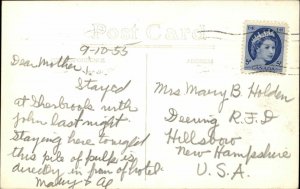 Post Card
9-10-55
Dear Mother,
Stayed
at Sherbrooke with
John last night
Staying here tonight
this pile of pulp is
directly in front of hotel
Mary + Al
Mrs Mary B Holden
Deering R.F.D
Hillsboro
New Hampshire
U.S.A.
CANADA